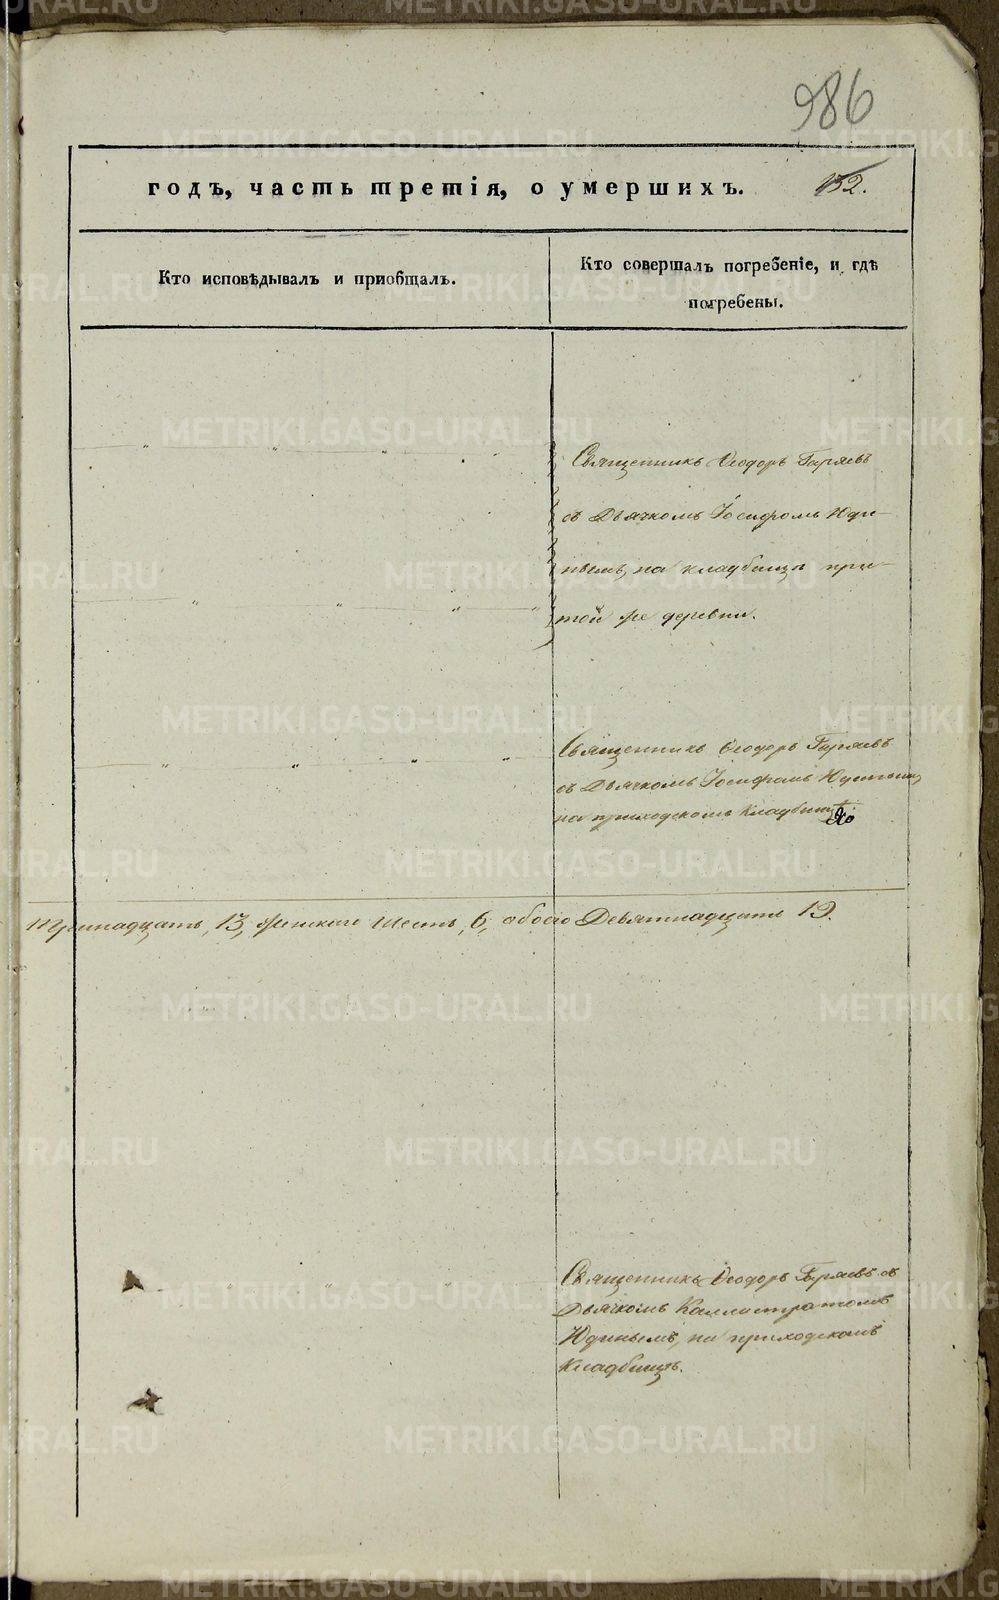 986
годъ, часть третія, о умершихъ. 152.
Кто исповѣдывалъ и приобщалъ.
Кто совершалъ погребеніе, и гдѣ
погребены.
Священникъ Ѳеодоръ Гаряевъ
съ Дьячкомъ Іосифомъ Юди-
нымъ, на кладбищѣ при
той же деревни.
Священникъ Ѳеодоръ Гаряевъ
съ Дьячкомъ Іосифомъ Юдинымъ,
на приходскомъ Кладбищѣ
Тринадцать, 13, женскаго Шесть, 6, обоего Девятнадцать 19.
Священникъ Ѳеодоръ Гаряевъ съ
Дьячкомъ Каллистратомъ
Юдинымъ, на приходскомъ
Кладбищѣ.
METRIKI.GASO-URAL.RU